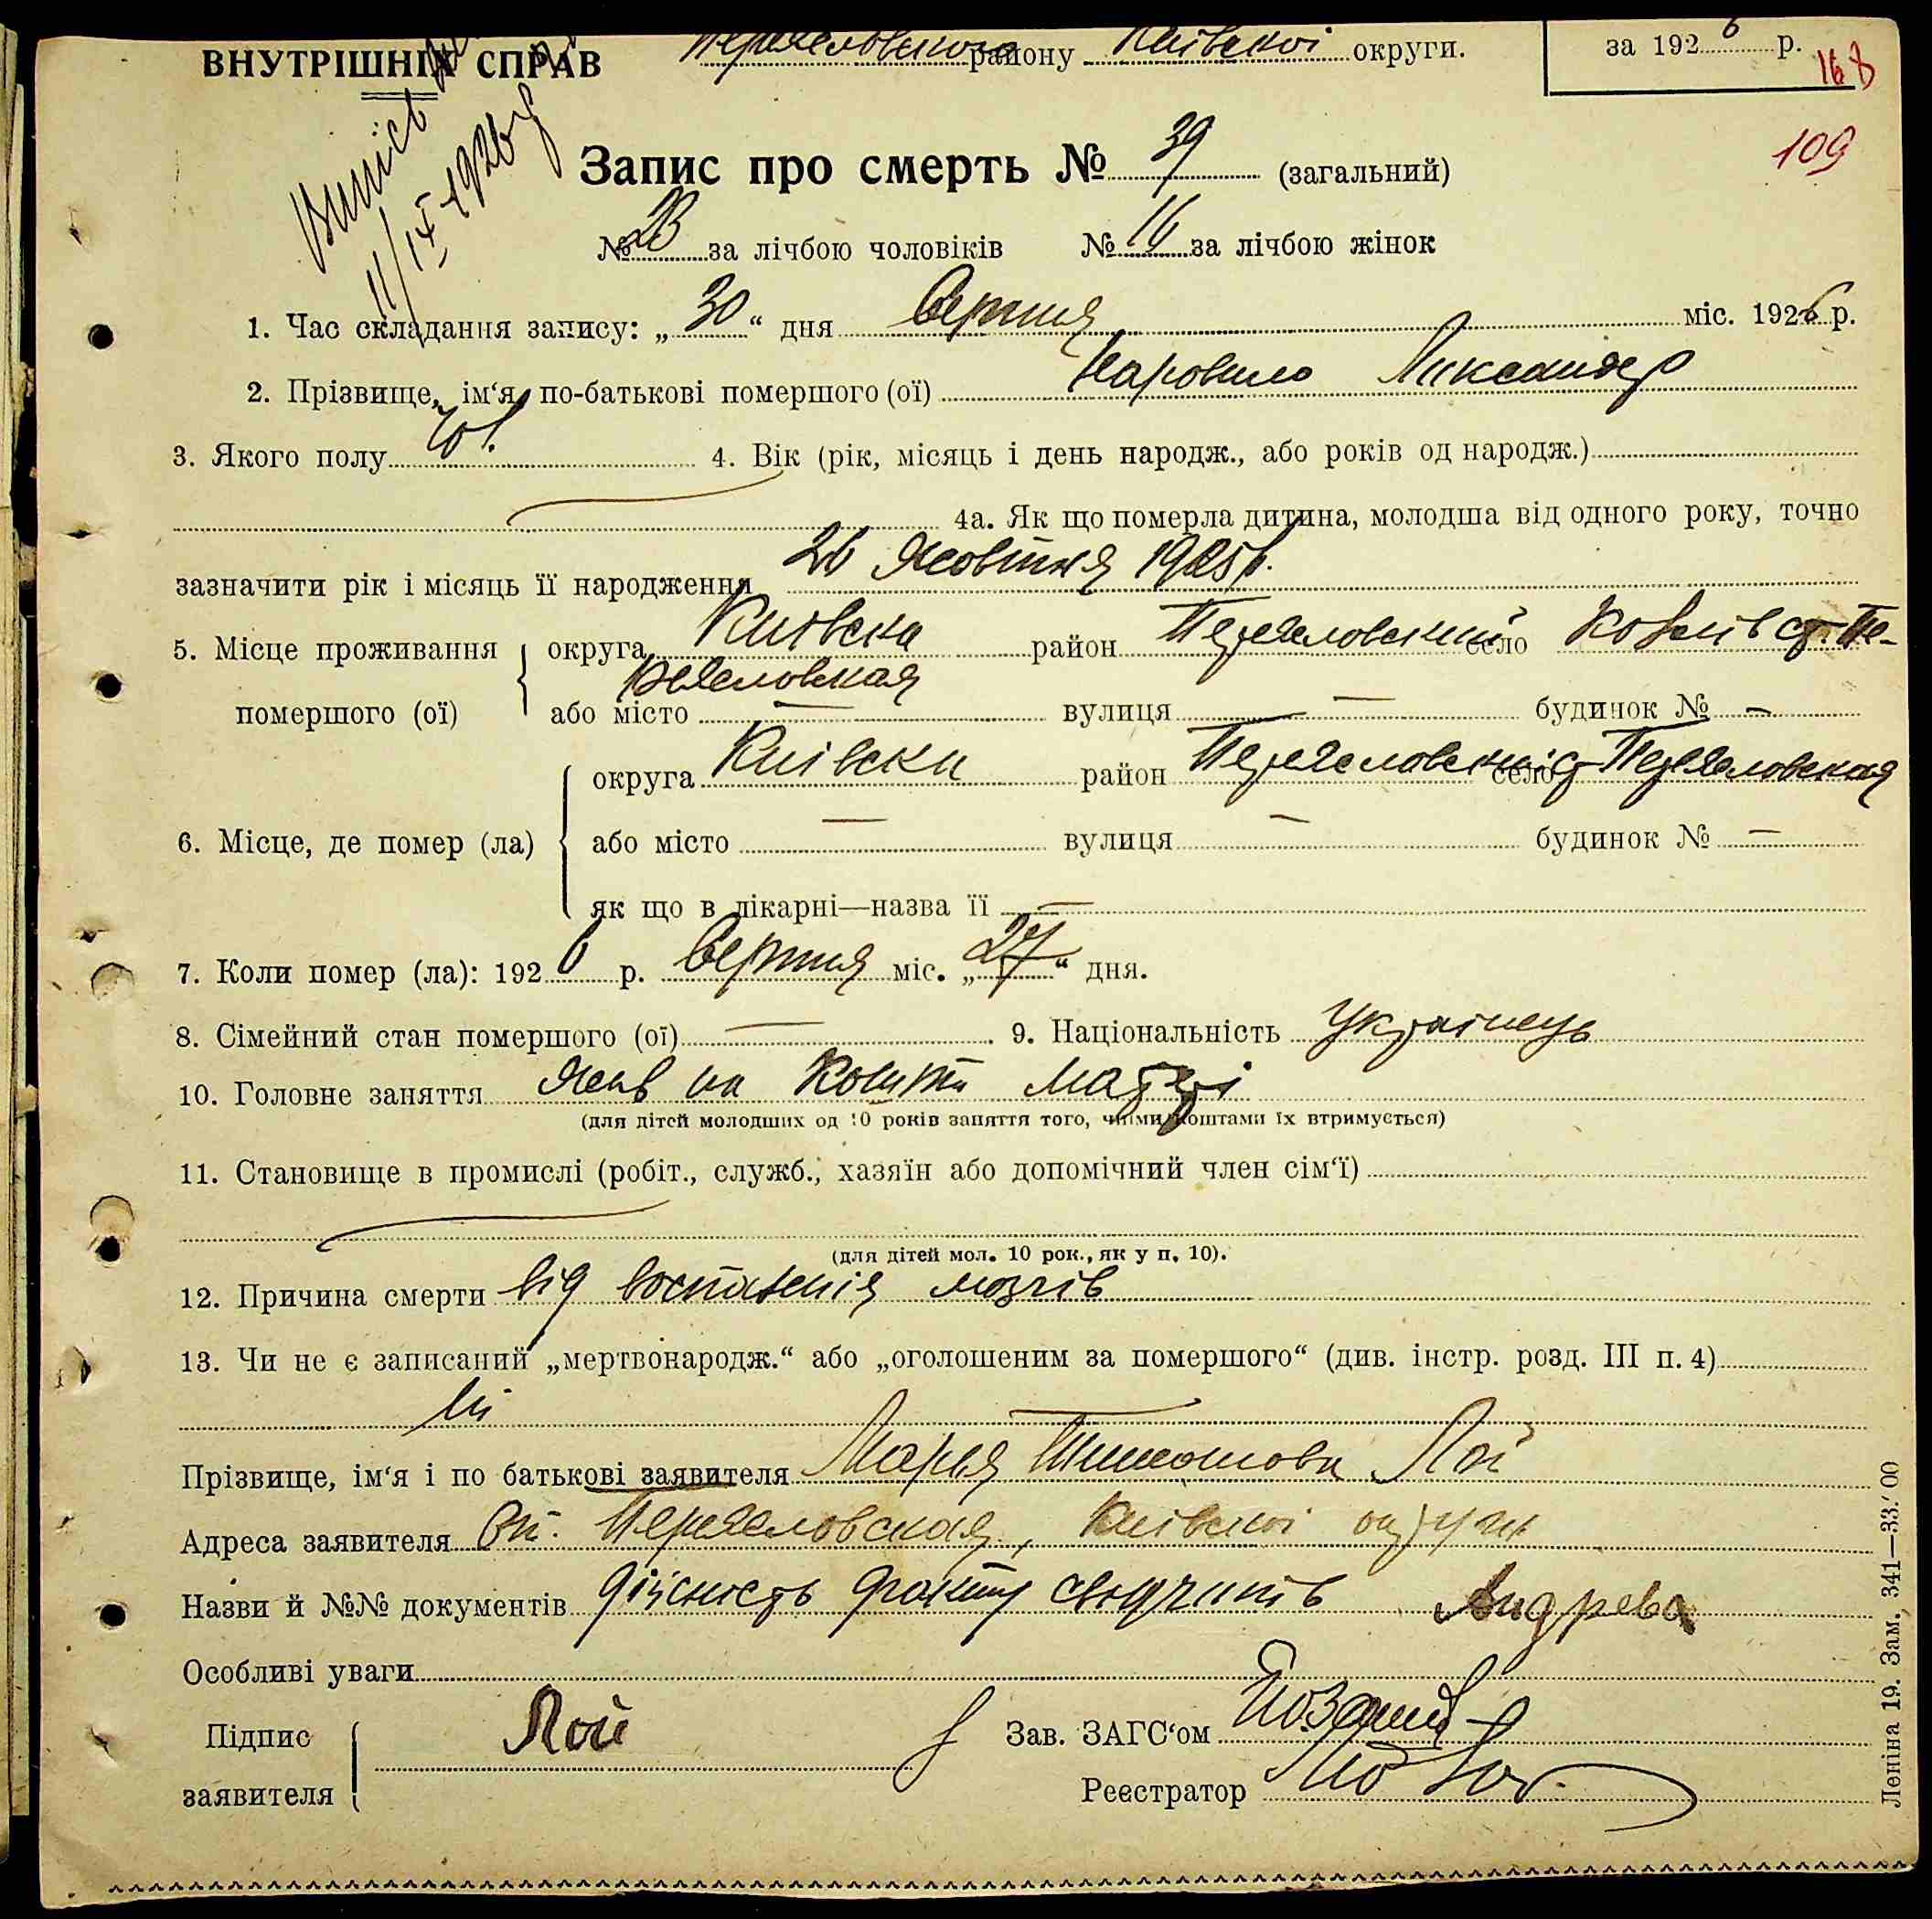 ВНУТРІШНІХ СПРАВ Переяславського району Київської округи. за 1926 р.
168
109
11/IX 1926
Запис про смерть № 39 (загальний)
№ 23 за лічбою чоловіків № 16 за лічбою жінок
1. Час складання запису: „30“ дня Серпня міс. 1926 р.
2. Прізвище, ім'я, по-батькові помершого (ої) Александер
3. Якого полу чол. 4. Вік (рік, місяць і день народж., або років од народж.)
4а. Як що померла дитина, молодша від одного року, точно
зазначити рік і місяць її народження 26 Жовтня 1925 р.
5. Місце проживання округа Киівска район село
помершого (ої) або місто — вулиця — будинок № —
округа Киівска район село
6. Місце, де помер (ла) або місто — вулиця — будинок № —
як що в лікарні—назва її —
7. Коли помер (ла): 1926 р. Серпня міс. „27“ дня.
8. Сімейний стан помершого (ої) — 9. Національність Украінець
10. Головне заняття жив на кошти матері
(для дітей молодших од 10 років заняття того, чиїми коштами їх втримується)
11. Становище в промислі (робіт., служб., хазяїн або допомічний член сім'ї)
(для дітей мол. 10 рок., як у п. 10).
12. Причина смерти від воспаленія мозгів
13. Чи не є записаний „мертвонародж.“ або „оголошеним за помершого“ (див. інстр. розд. III п. 4)
Ні
Прізвище, ім'я і по батькові заявителя Марья Тимошова Лой
Адреса заявителя Ст. Переяславская, Киівскоі округи
Назви й №№ документів дійсність факту свідчить Андрева
Особливі уваги
Підпис Лой Зав. ЗАГС'ом
заявителя Реєстратор
Леніна 19. Зам. 341—33.' 00